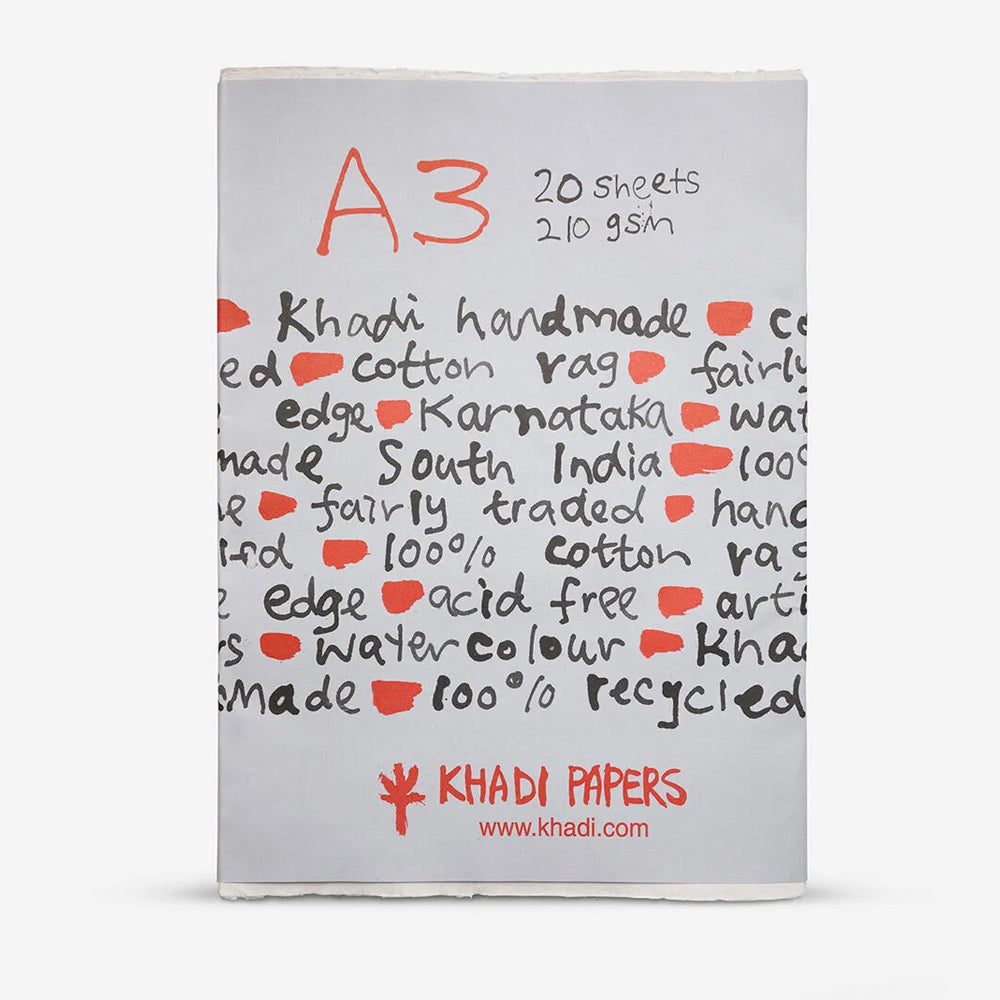 A3
20 sheets
210 gsm
Khadi handmade co
ed cotton rag fairly
edge Karnataka wat
made South India 100
e fairly traded hand
100% cotton rag
edge acid free arti
rs watercolour Kha
made 100% recycled
KHADI PAPERS
www.khadi.com